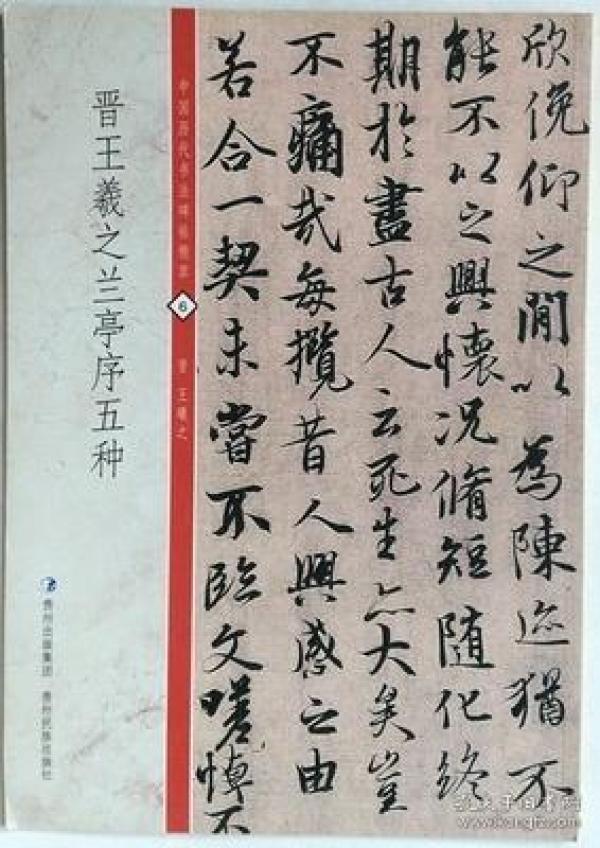 欣俛仰之閒以為陳迹猶不
能不以之興懷况脩短隨化終
期於盡古人云死生亦大矣豈
不痛哉每攬昔人興感之由
若合一契未嘗不臨文嗟悼不
中国历代书法碑帖精选
6
晋 王羲之
晋王羲之兰亭序五种
贵州出版集团 贵州民族出版社
www.kongfz.com